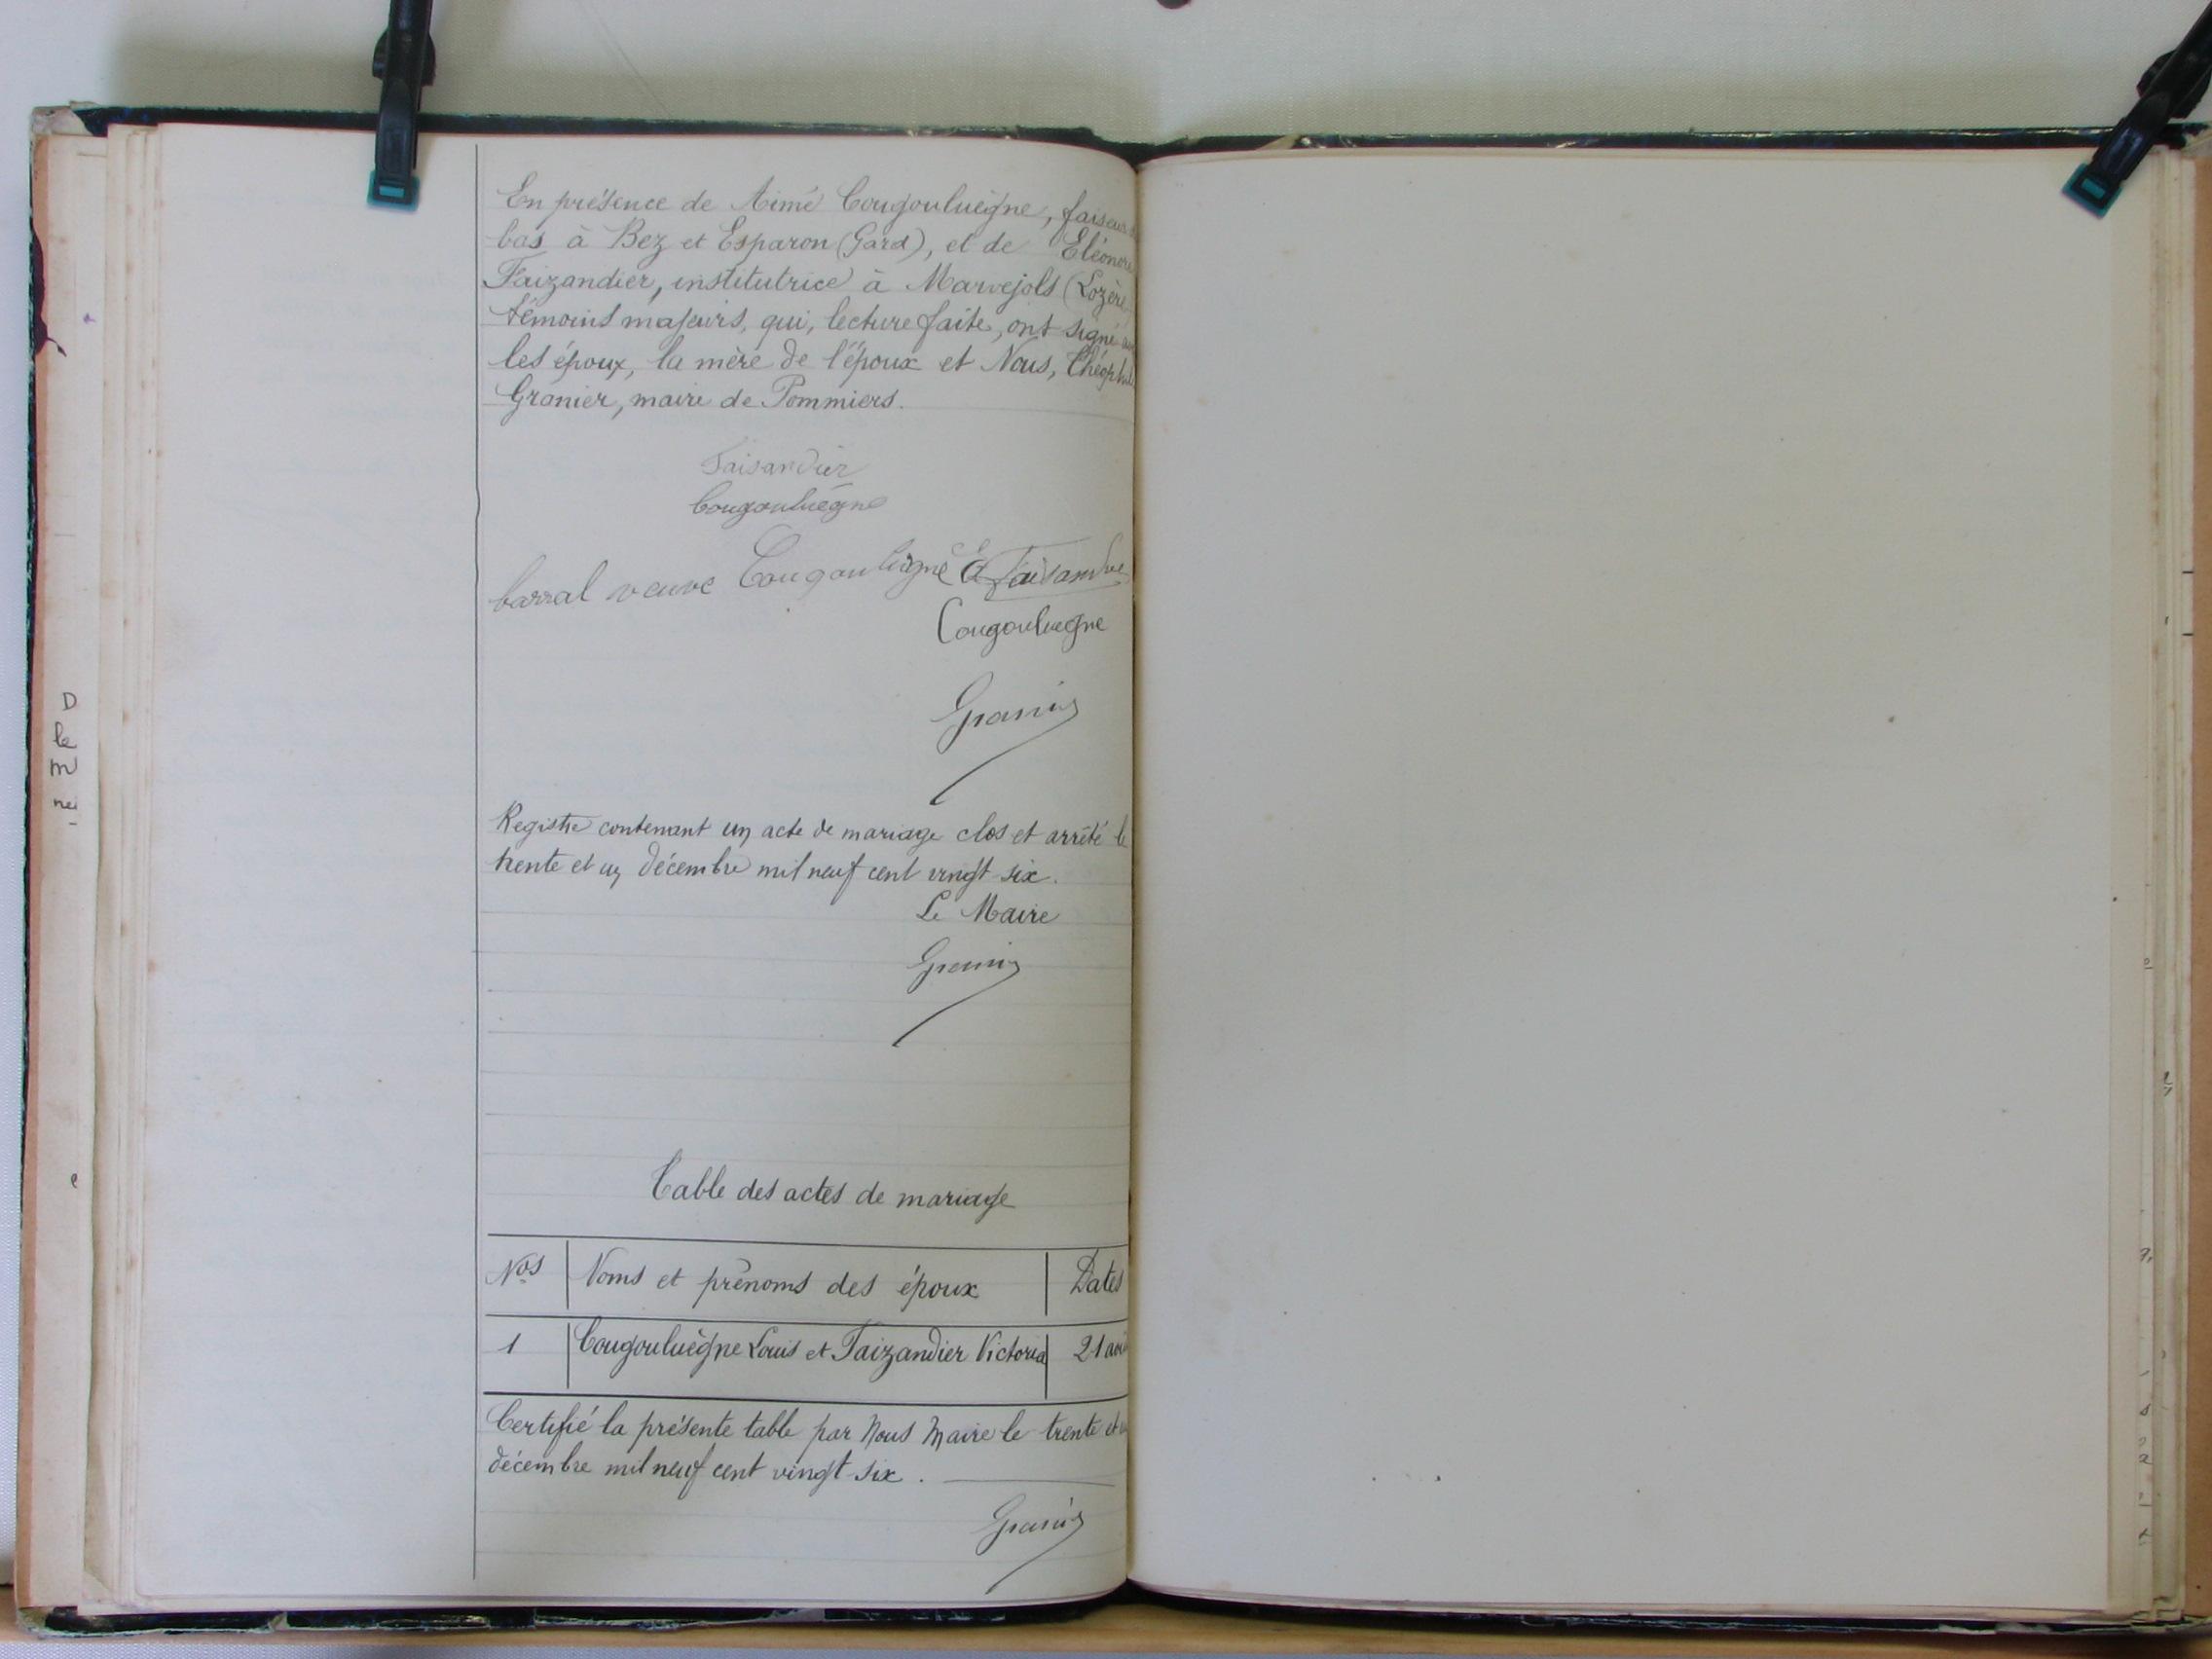 En présence de Aimé Cougouluègne, faiseur de
bas à Bez et Esparon (Gard), et de Eléonore
Faizandier, institutrice à Marvejols (Lozère
témoins majeurs, qui, lecture faite, ont signé avec
les époux, la mère de l'époux et Nous, Théophile
Granier, maire de Pommiers.
Faisandier
Cougouluègne
barral veuve Cougouluègne E Faisandier
Cougouluegne
Granier
Registre contenant un acte de mariage clos et arrêté le
trente et un décembre mil neuf cent vingt six.
Le Maire
Granier
Table des actes de mariage
Nos Noms et prénoms des époux Dates
1 Cougouluègne Louis et Faizandier Victoria 21
Certifié la présente table par Nous Maire le trente et un
décembre mil neuf cent vingt six.
Granier
D
le
m
ne